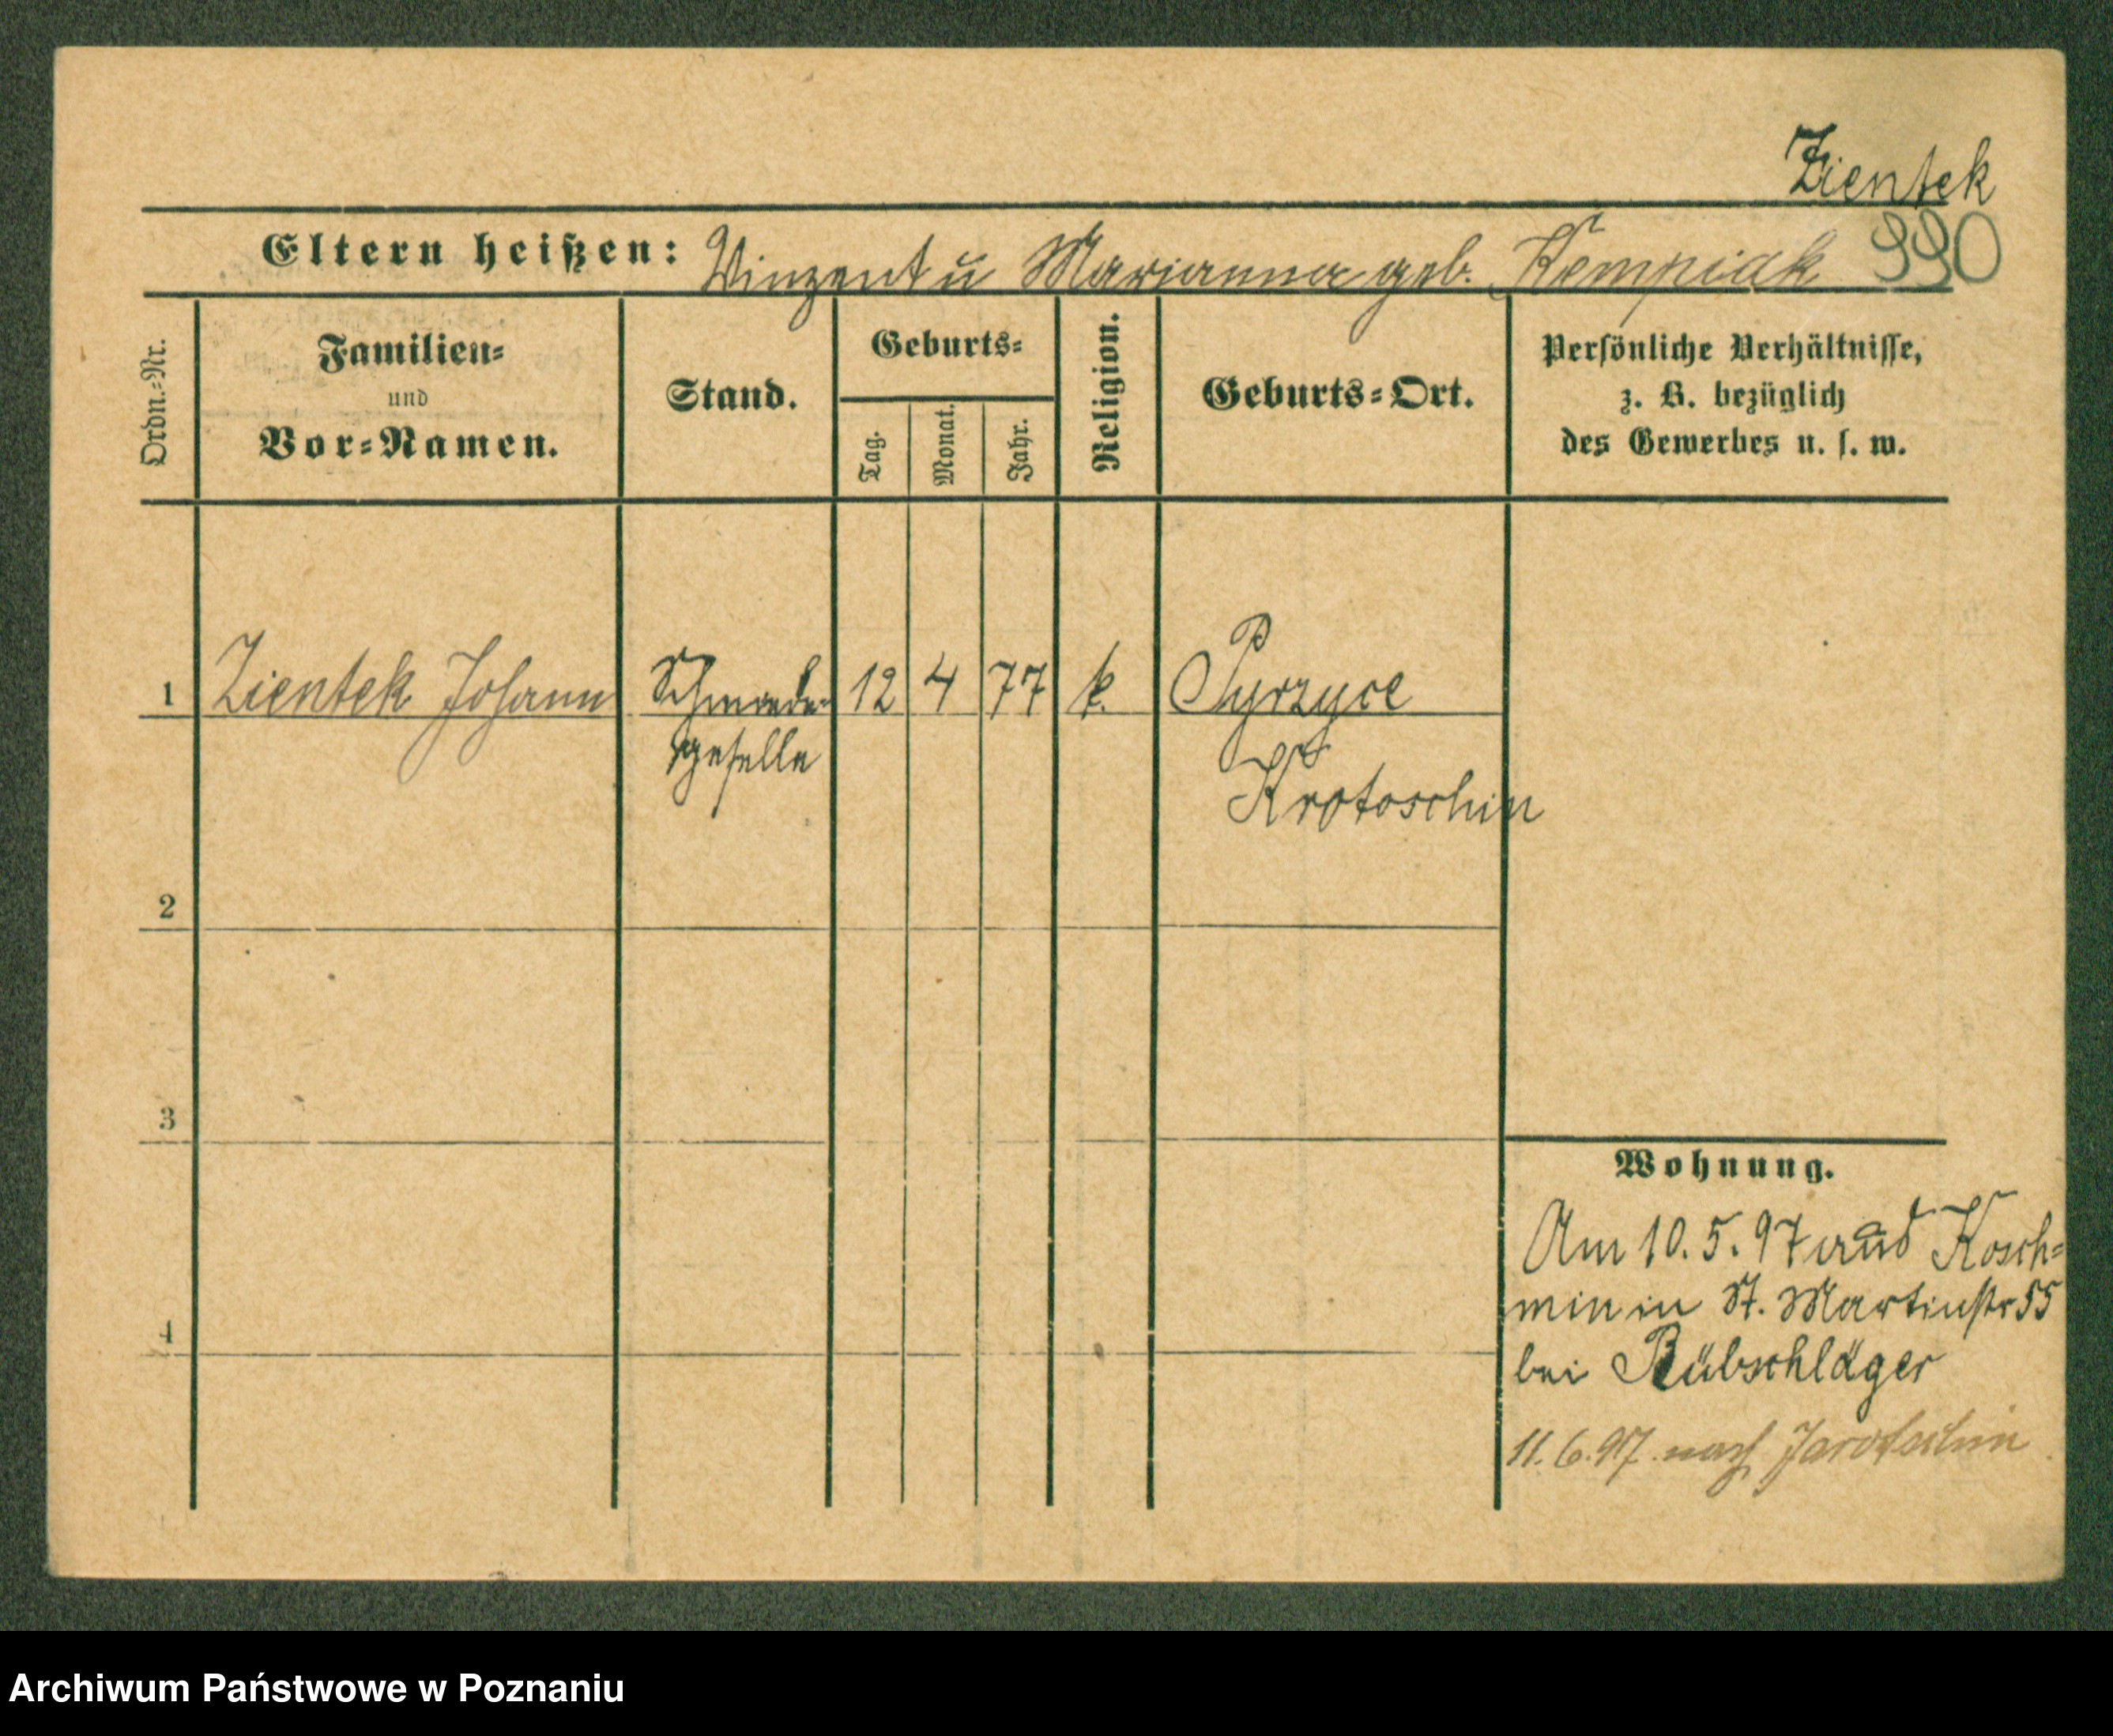 Zientek
990
Eltern heißen: Vinzent u Marianna geb. Kempiak
Ordn.=Nr.
Familien=
und
Vor=Namen.
Stand.
Geburts=
Tag.
Monat.
Jahr.
Religion.
Geburts=Ort.
Persönliche Verhältnisse,
z. B. bezüglich
des Gewerbes u. s. w.
1 Zientek Johann 12 4 77 k. Pyrzyce
geselle
Kr
Krotoschin
2
3
4
Wohnung.
Am 10.5.97 aus Kosch=
min in St. Martinstr 55
bei Rübschläger
11.6.97. nach Jarotschin
Archiwum Państwowe w Poznaniu